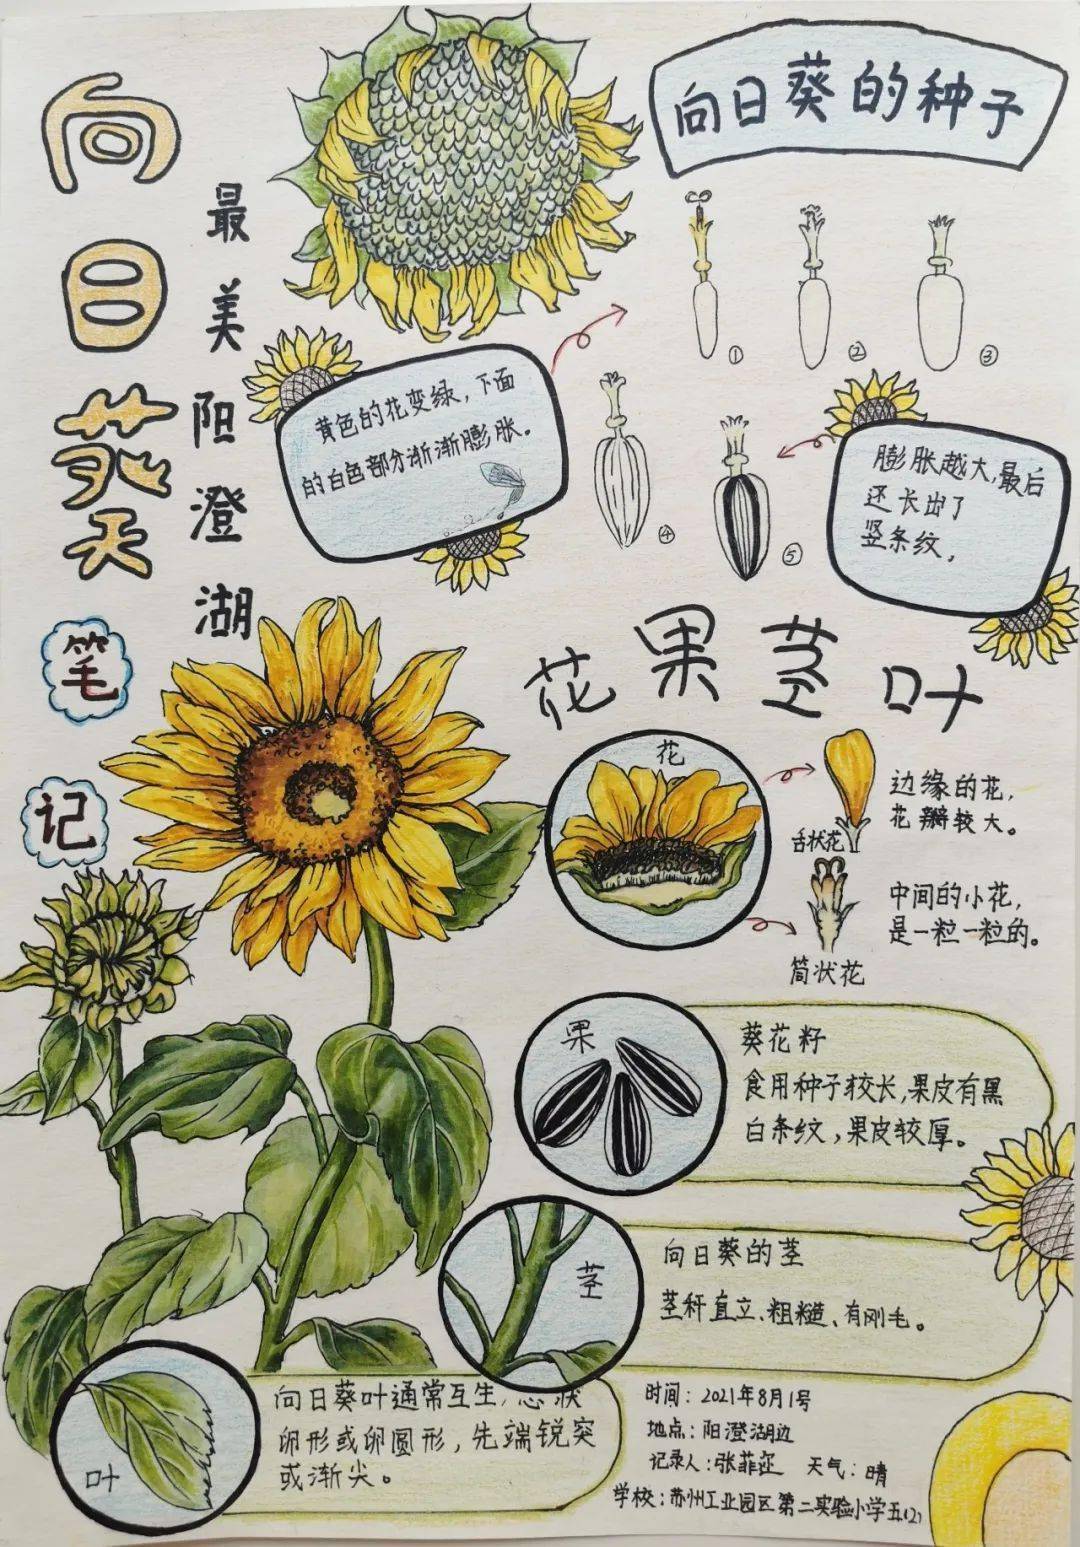 向日葵
笔记
最美阳澄湖
向日葵的种子
①
②
③
④
⑤
黄色的花变绿，下面
的白色部分渐渐膨胀。
膨胀越大，最后
还长出了
竖条纹，
花果茎叶
花
舌状花
边缘的花，
花瓣较大。
筒状花
中间的小花，
是一粒一粒的。
果
葵花籽
食用种子较长，果皮有黑
白条纹，果皮较厚。
茎
向日葵的茎
茎秆直立、粗糙、有刚毛。
叶
向日葵叶通常互生，心状
卵形或卵圆形，先端锐突
或渐尖。
时间：2021年8月1号
地点：阳澄湖边
记录人：张菲 天气：晴
学校：苏州工业园区第二实验小学五(2)